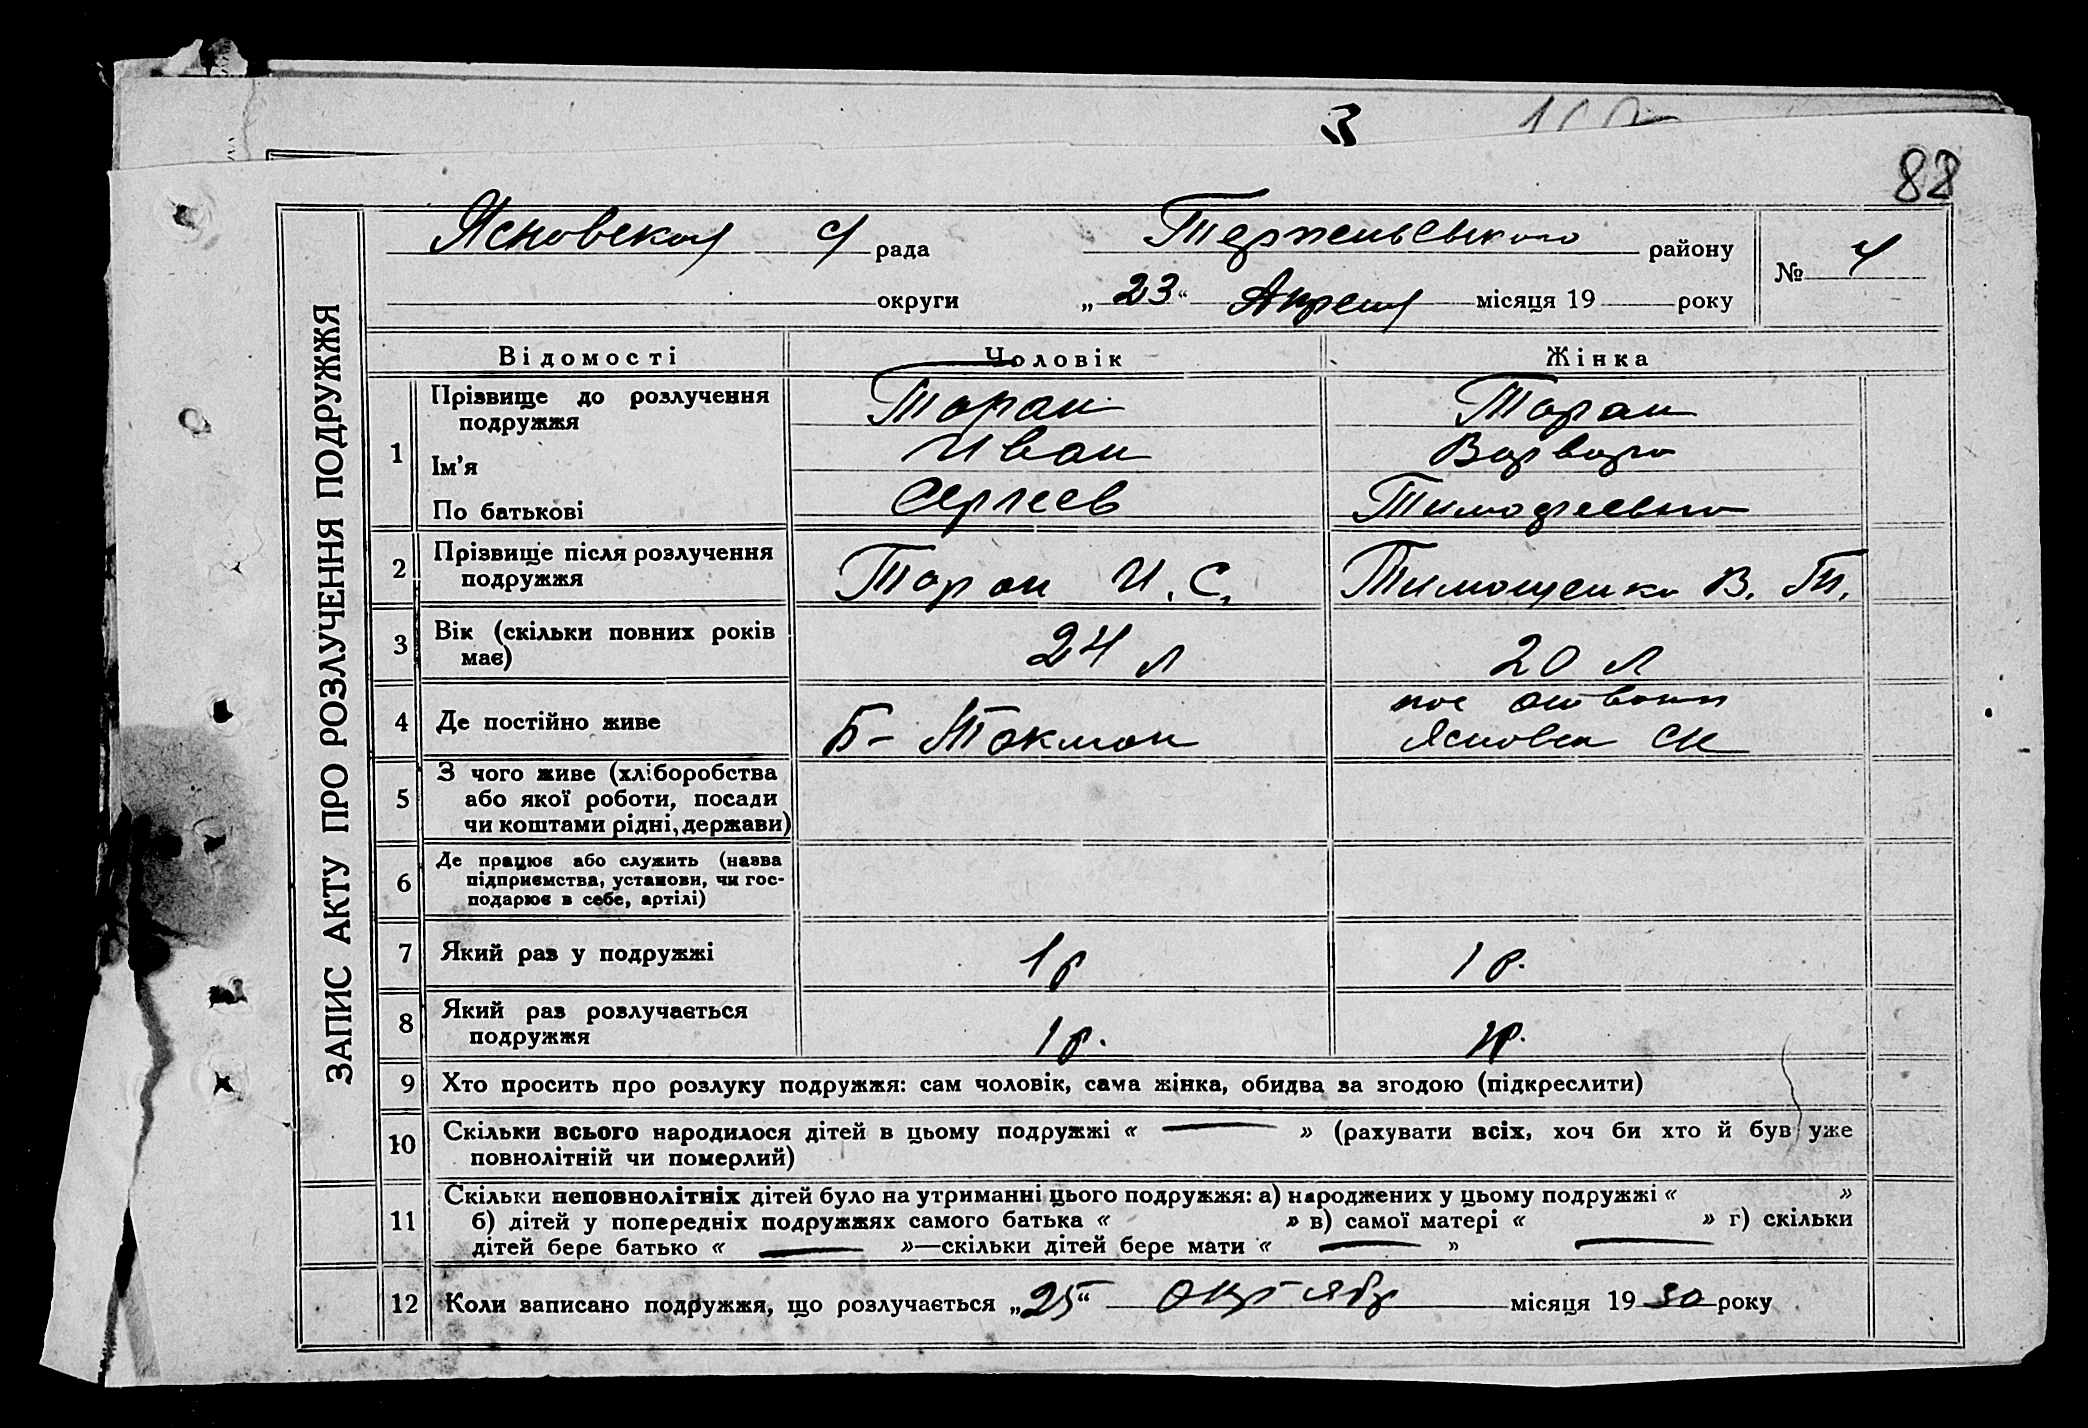 3
88
ЗАПИС АКТУ ПРО РОЗЛУЧЕННЯ ПОДРУЖЖЯ
Ясновская с/ рада Терпеньевського району № 4
округи „23“ Апреля місяця 19 року
Відомості Чоловік Жінка
1 Прізвище до розлучення подружжя Таран Таран
Ім'я Иван Варвара
По батькові Сергеев Тимофеевна
2 Прізвище після розлучення подружжя Таран И. С. Тимощенко В. Т.
3 Вік (скільки повних років має) 24 л 20 л
4 Де постійно живе Б-Токмак Ясновск
5 З чого живе (хліборобства
або якої роботи, посади
чи коштами рідні, держави)
6 Де працює або служить (назва
підприємства, установи, чи гос-
подарює в себе, артілі)
7 Який раз у подружжі 1 р 1 р.
8 Який раз розлучається подружжя 1 р. 1 р.
9 Хто просить про розлуку подружжя: сам чоловік, сама жінка, обидва за згодою (підкреслити)
10 Скільки всього народилося дітей в цьому подружжі « — » (рахувати всіх, хоч би хто й був уже
повнолітній чи померлий)
11 Скільки неповнолітніх дітей було на утриманні цього подружжя: а) народжених у цьому подружжі « »
б) дітей у попередніх подружжях самого батька « » в) самої матері « » г) скільки
дітей бере батько « — »—скільки дітей бере мати « — » —
12 Коли записано подружжя, що розлучається „25“ октябр місяця 1930 року